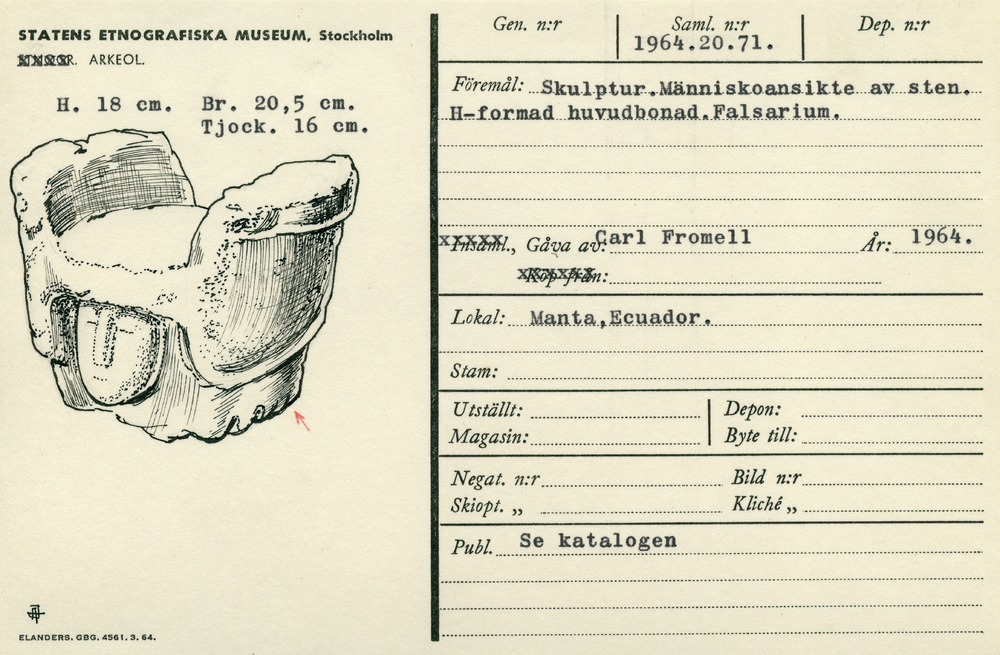 STATENS ETNOGRAFISKA MUSEUM, Stockholm
ARKEOL.
H. 18 cm. Br. 20,5 cm.
Tjock. 16 cm.
ELANDERS, GBG. 4561. 3. 64.
Gen. n:r Saml. n:r Dep. n:r
1964.20.71.
Föremål: Skulptur.Människoansikte av sten.
H-formad huvudbonad.Falsarium.
Insaml., Gåva av: Carl Fromell År: 1964.
Köp från:
Lokal: Manta,Ecuador.
Stam:
Utställt: Depon:
Magasin: Byte till:
Negat. n:r Bild n:r
Skiopt. „ Kliché „
Publ. Se katalogen